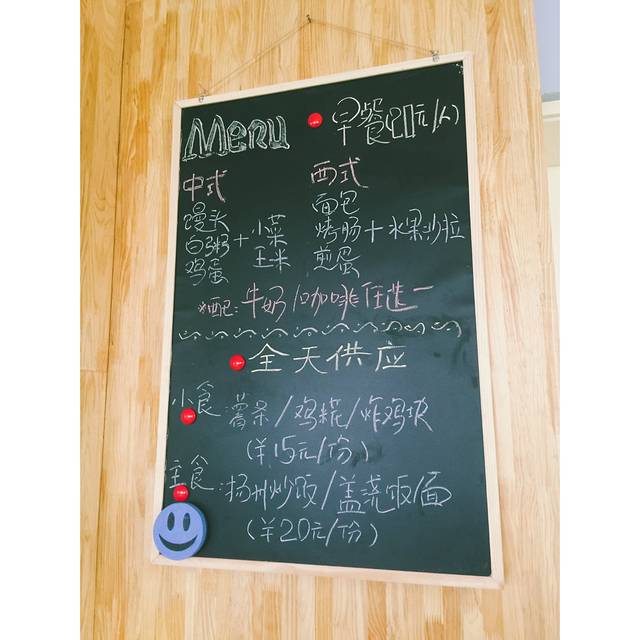 Menu 早餐(20元/人)
中式 西式
馒头 面包
白粥 + 小菜 烤肠 + 水果沙拉
鸡蛋 玉米 煎蛋
*配:牛奶/咖啡任选一
全天供应
小食:薯条/鸡柳/炸鸡块
(¥15元/份)
主食:扬州炒饭/盖浇饭/面
(¥20元/份)